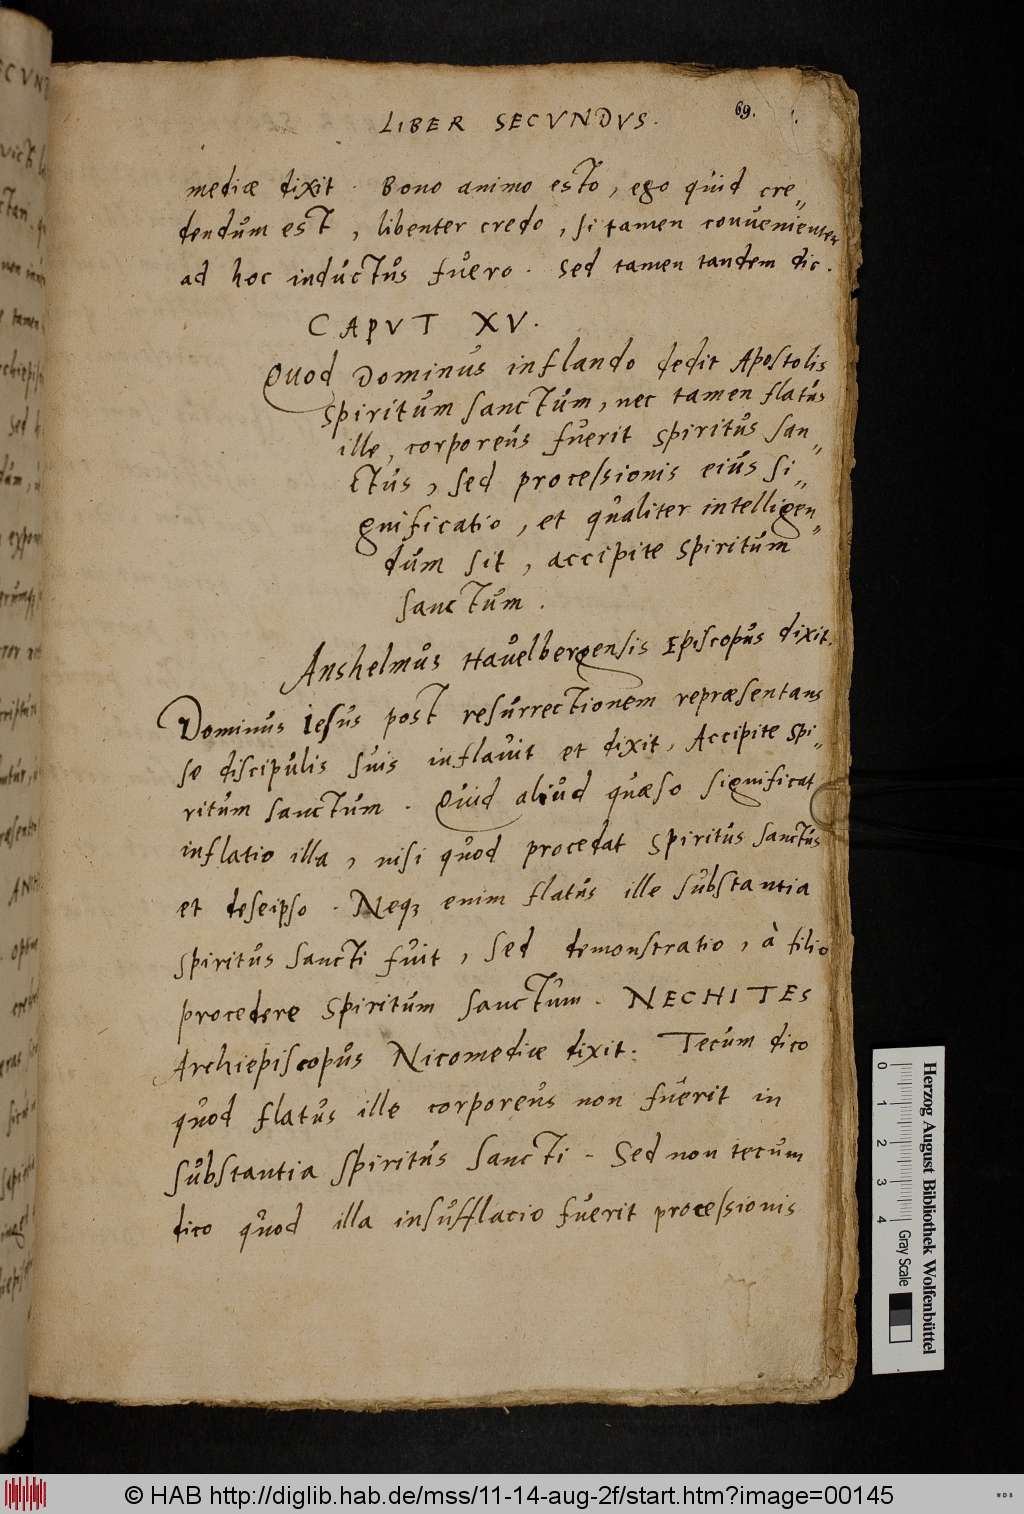 LIBER SECVNDVS.
69.
mediæ dixit. Bono animo esto, ego quid cre„
dendum est, libenter credo, si tamen convenienter
ad hoc inductus fuero. Sed tamen tandem dic.
CAPVT XV.
Quod Dominus inflando dedit Apostolis
Spiritum sanctum, nec tamen flatus
ille, corporeus fuerit spiritus san„
ctus, sed processionis eius si„
gnificatio, et qualiter intelligen„
dum sit, accipite Spiritum
sanctum.
Anshelmus Havelbergensis Episcopus dixit.
Dominus Iesus post resurrectionem repræsentans
se discipulis suis inflavit et dixit, Accipite Spi„
ritum sanctum. Quid aliud quæso significat
inflatio illa, nisi quod procedat Spiritus sanctus
et deseipso. Neqꝫ enim flatus ille substantia
spiritus sancti fuit, sed demonstratio, à filio
procedere Spiritum sanctum. NECHITES
Archiepiscopus Nicomediæ dixit: Tecum dico
quod flatus ille corporeus non fuerit in
substantia spiritus sancti. Sed non tecum
dico quod illa insufflacio fuerit processionis
0 1 2 3 4
Gray Scale
Herzog August Bibliothek Wolfenbüttel
© HAB http://diglib.hab.de/mss/11-14-aug-2f/start.htm?image=00145